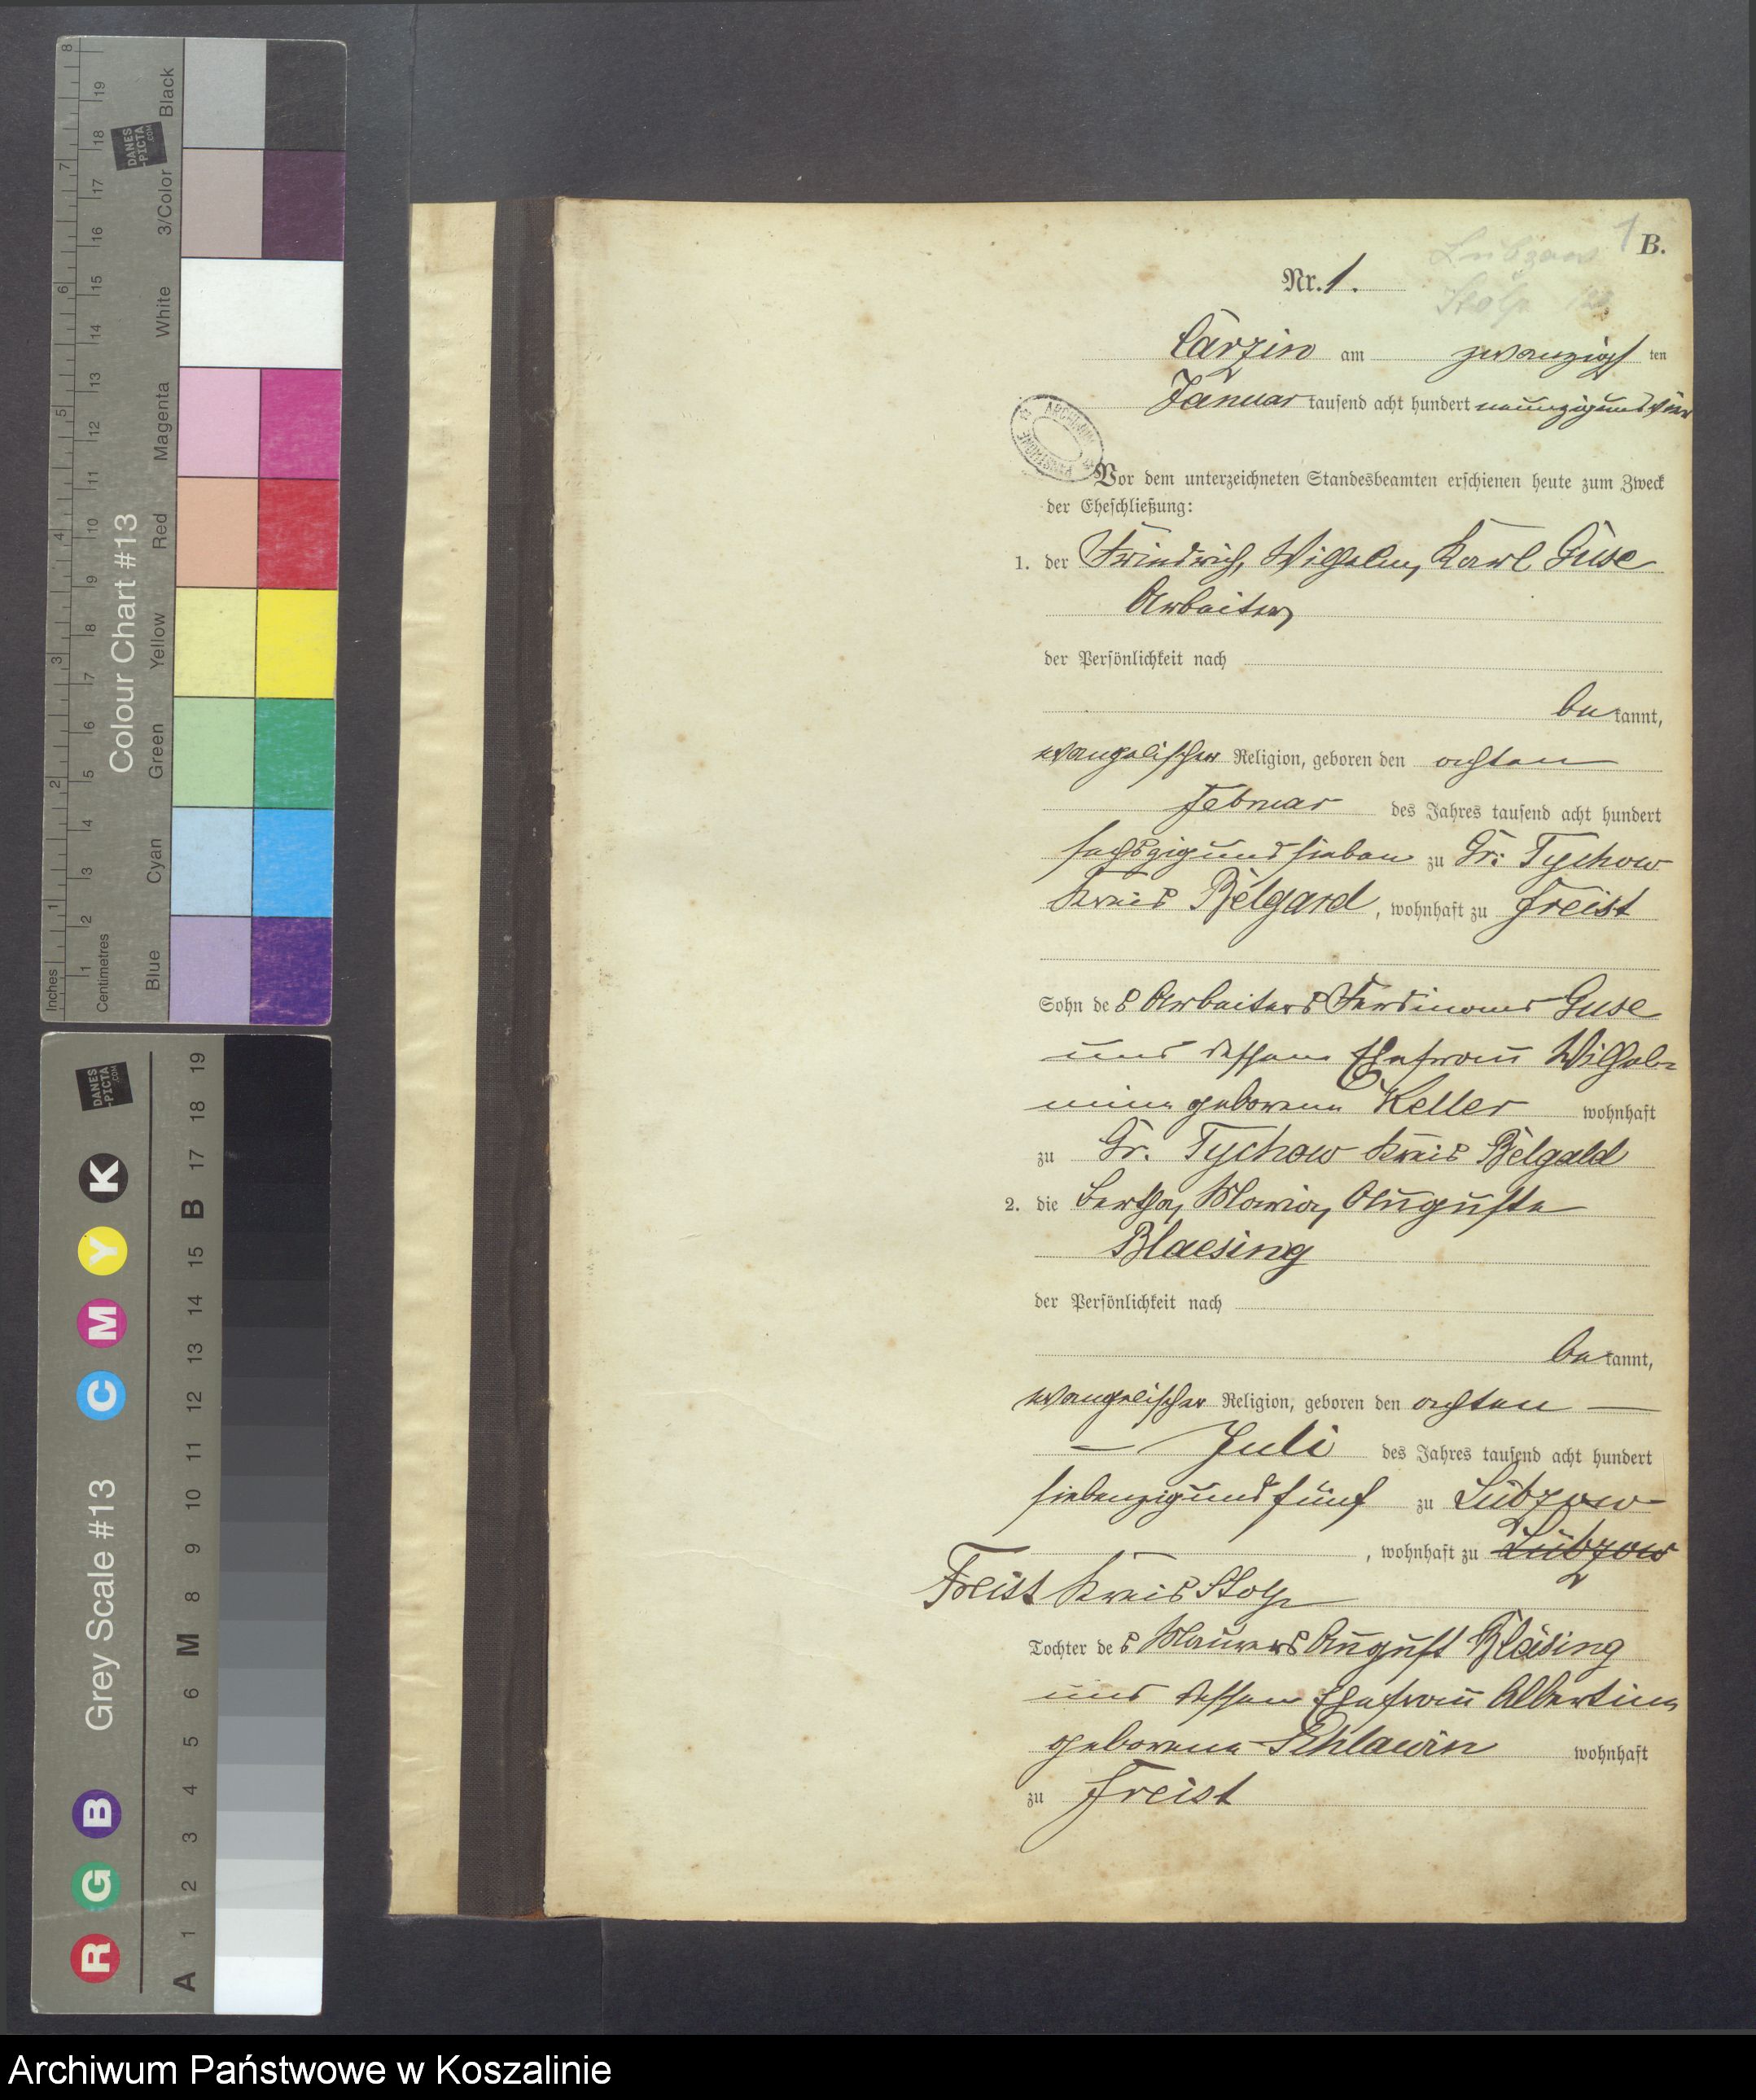 8
7
6
5
4
3
2
1
Inches
19
18
17
16
15
14
13
12
11
10
9
8
7
6
5
4
3
2
1
Centimetres
DANES
-PICTA
.COM
Colour Chart #13
Black
3/Color
White
Magenta
Red
Yellow
Green
Cyan
Blue
DANES
-PICTA
.COM
Grey Scale #13
R G B C M Y K
A 1 2 3 4 5 6 M 8 9 10 11 12 13 14 15 B 17 18 19
1 B.
Lübzow
Stolp
Nr. 1.
Carzin am zwanzigsten
Januar tausend acht hundert neunzig und vier
ARCHIWUM
Vor dem unterzeichneten Standesbeamten erschienen heute zum Zweck
der Eheschließung:
1. der Friedrich, Wilhelm, Karl Guse
Arbeiter,
der Persönlichkeit nach
bekannt,
evangelischer Religion, geboren den achten
Februar des Jahres tausend acht hundert
sechszig und sieben zu Gr: Tychow
Kreis Belgard, wohnhaft zu Freist
Sohn des Arbeiters Ferdinand Guse
und dessen Ehefrau Wilhel-
mine geborene Keller wohnhaft
zu Gr. Tychow Kreis Belgald
2. die Bertha, Maria, Auguste
Blaesing
der Persönlichkeit nach
bekannt,
evangelischer Religion, geboren den achten —
— Juli des Jahres tausend acht hundert
siebenzig und fünf zu Lübzow
, wohnhaft zu Lübzow
Freist Kreis Stolp
Tochter des Maurers August Bläsing
und dessen Ehefrau Albertine
geborene Schlawin wohnhaft
zu Freist
Archiwum Państwowe w Koszalinie